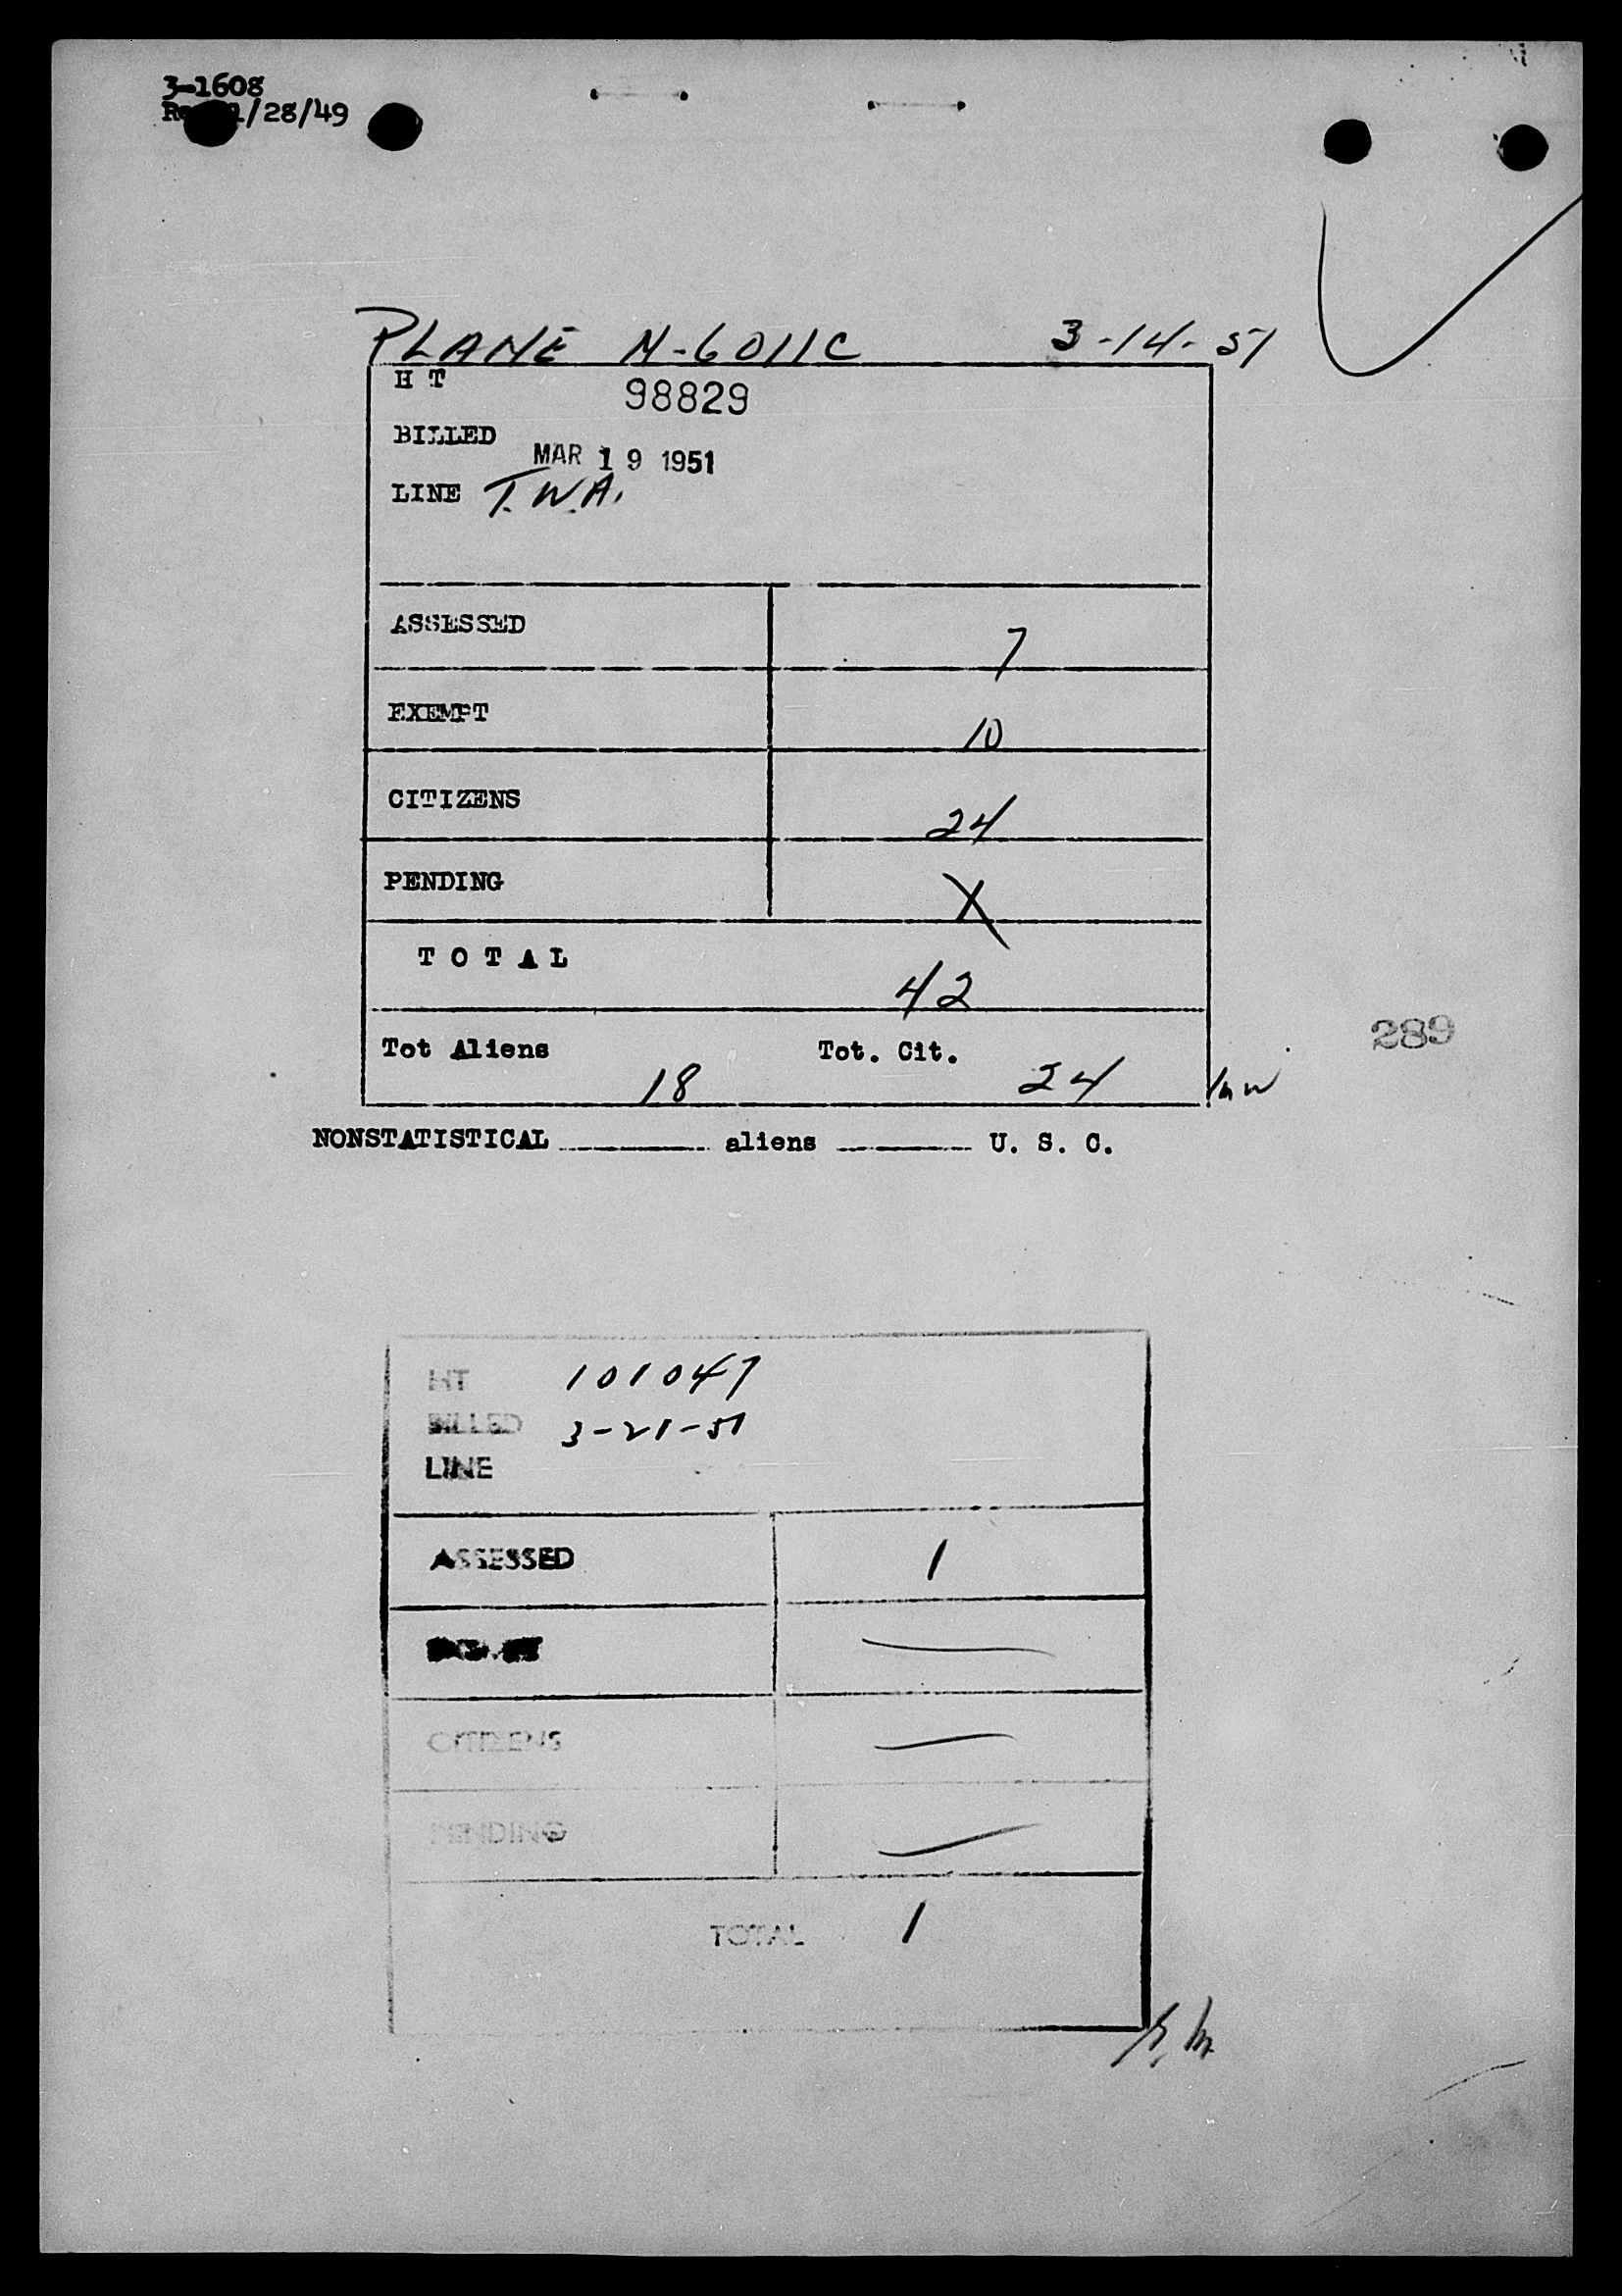 3-1608
1/28/49
PLANE N-6011C 3-14-51
H T 98829
BILLED MAR 19 1951
LINE T.W.A.
ASSESSED 7
EXEMPT 10
CITIZENS 24
PENDING X
TOTAL 42
Tot Aliens 18 Tot. Cit. 24
289
NONSTATISTICAL aliens U. S. C.
HT 101047
BILLED 3-21-51
LINE
ASSESSED 1
CITIZENS —
PENDING —
TOTAL 1